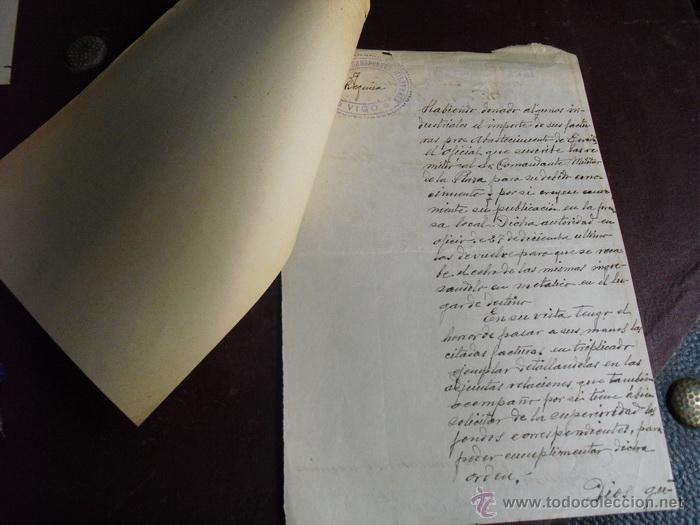 Requisa
VIGO
Habiendo donado algunos in-
dustriales el importe de sus factu-
ras pro Abastecimiento de
el Oficial que suscribe las re-
mitió al Sr Comandante Militar
de la Plaza para su debido cono-
cimiento y por si creyese conve-
niente su publicación en la pren-
sa local. Dicha autoridad en
oficio de de diciembre ultimo
las devuelve para que se reca-
be el cobro de las mismas ingre-
sandolo en metalico en el lu-
gar de destino
En su vista tengo el
honor de pasar a sus manos las
citadas facturas en triplicado
ejemplar detallandolas en las
adjuntas relaciones que tambien
acompaño por si tiene á bien
solicitar de la superioridad los
fondos correspondientes, para
poder cumplimentar dicha
orden.
Dios gu-
todocoleccion
www.todocoleccion.net